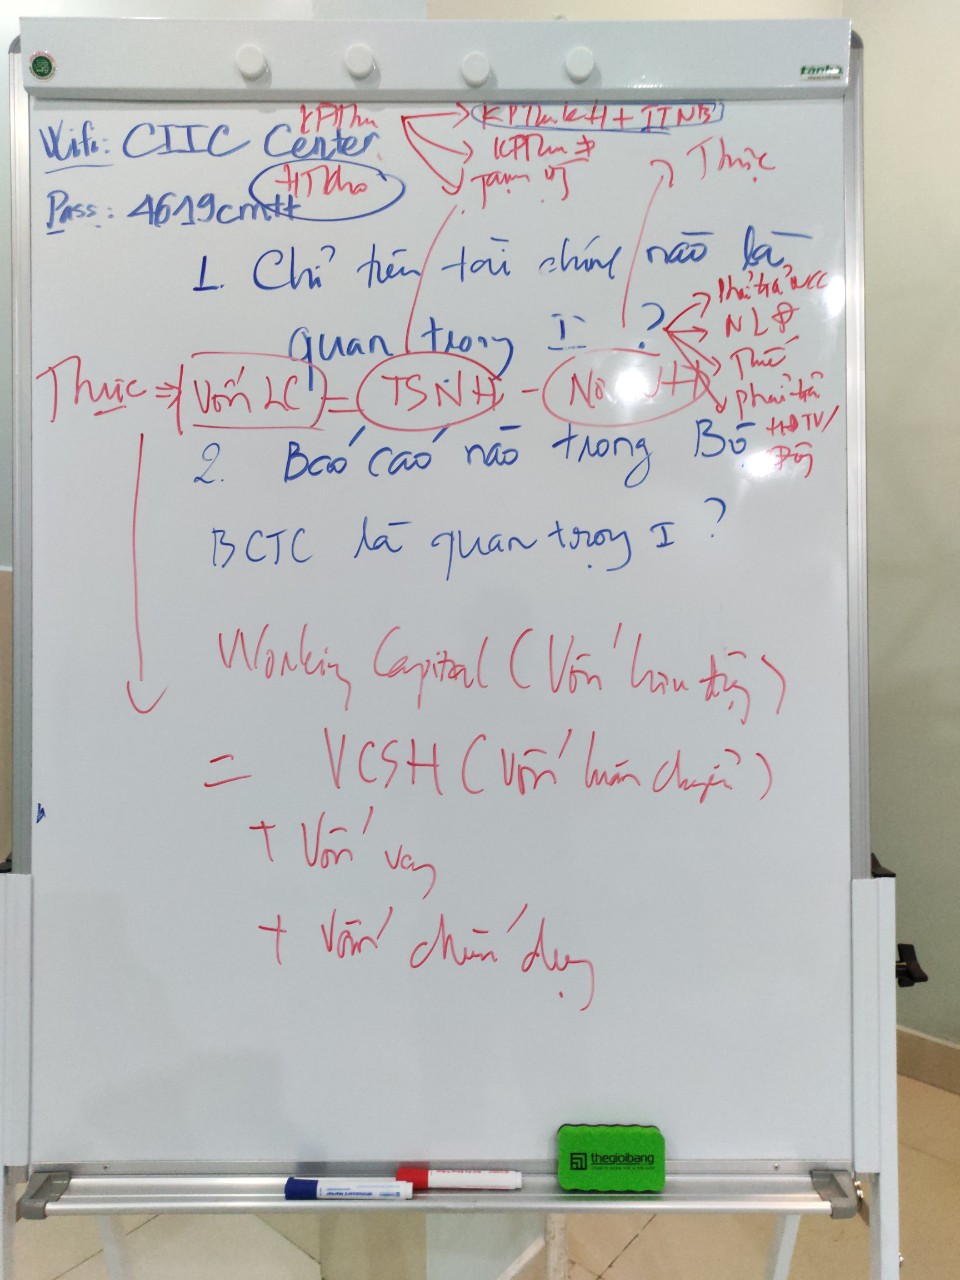 Wifi: CIIC Center
Pass: 4619cmtt
KPThu
HTKho
KPThu KH + ITNB
KPThu ≠
Tạm ứ
Thực
1. Chỉ tiêu tài chính nào là
quan trọng I ?
Phải trả NCC
NLĐ
Thuế
phải trả
HĐTV/
Thực => Vốn LC = TSNH - Nợ NH
2. Báo cáo nào trong Bộ
BCTC là quan trọng I ?
Working Capital (Vốn lưu động)
= VCSH (Vốn luân chuyển)
+ Vốn vay
+ Vốn chiếm dụng
thegioibang